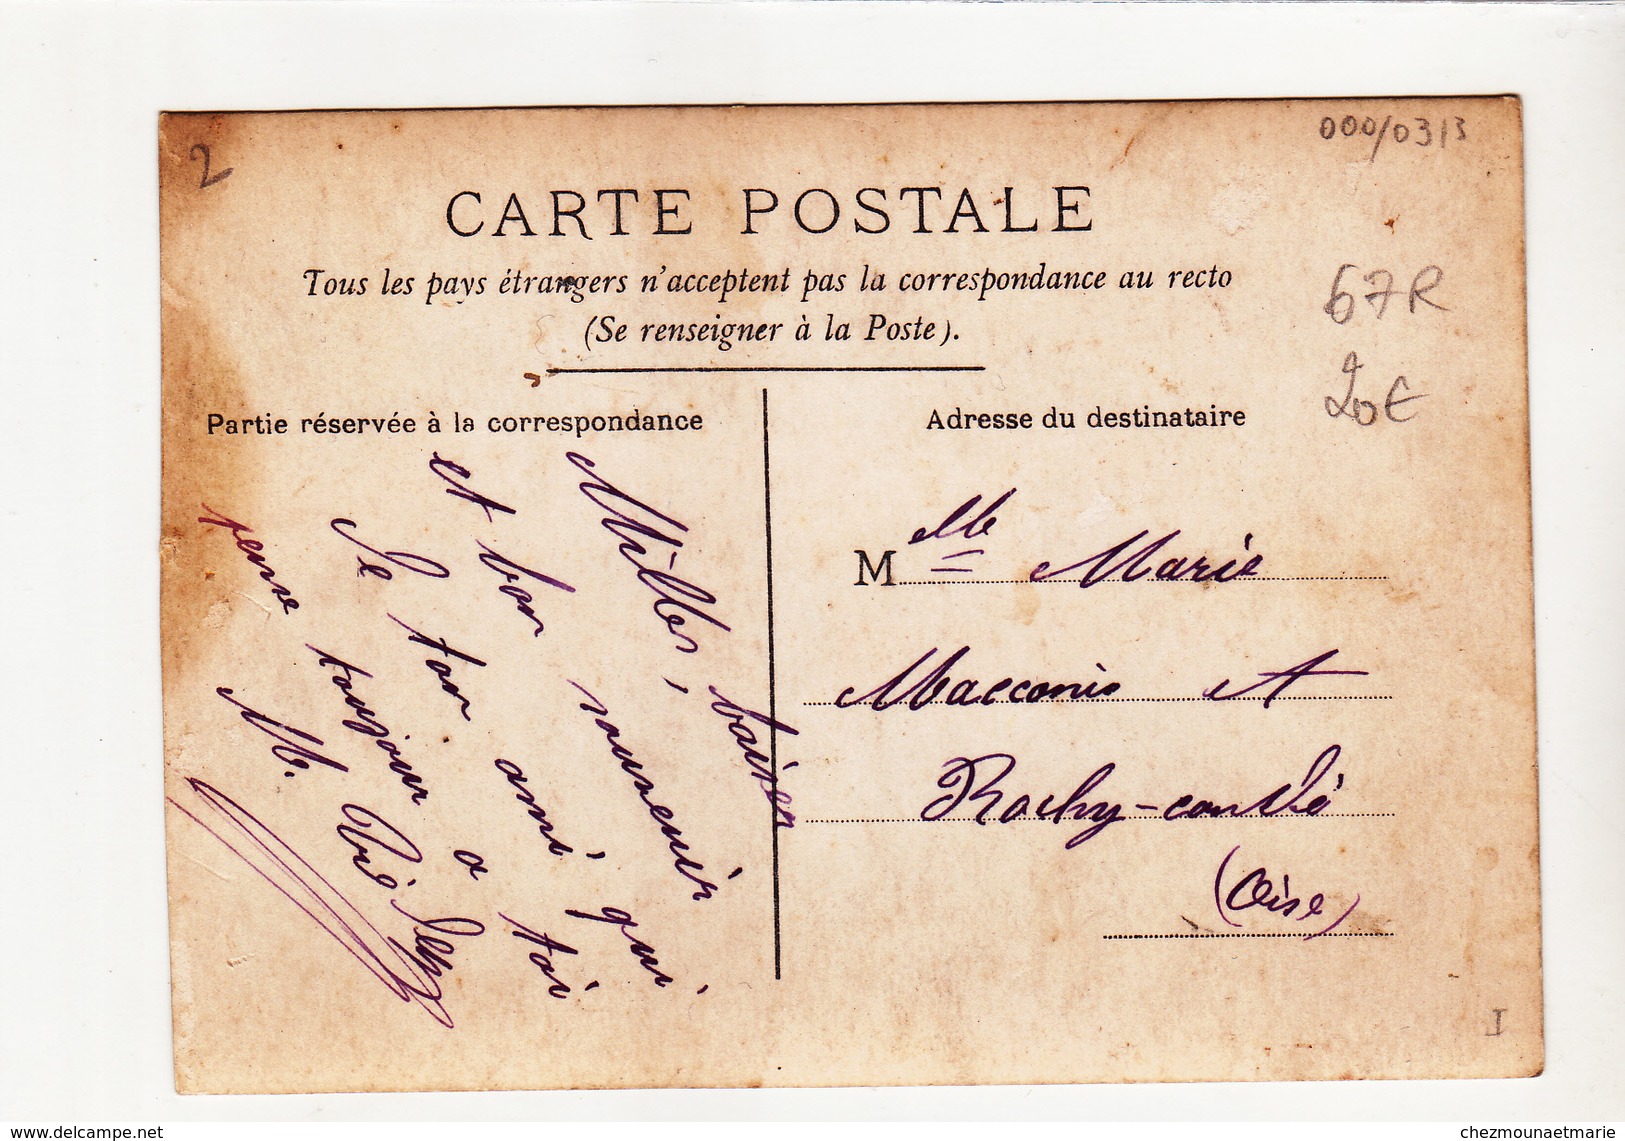 2
000/0313
CARTE POSTALE
Tous les pays étrangers n'acceptent pas la correspondance au recto
(Se renseigner à la Poste).
67R
20€
Partie réservée à la correspondance
Milles, baiser
et bon souvenir
De ton ami qui
pense toujour a toi
M.
Adresse du destinataire
Mlle Marie
Macconis A
Rochy-condé
(Oise)
I
delcampe.net
chezmounaetmarie